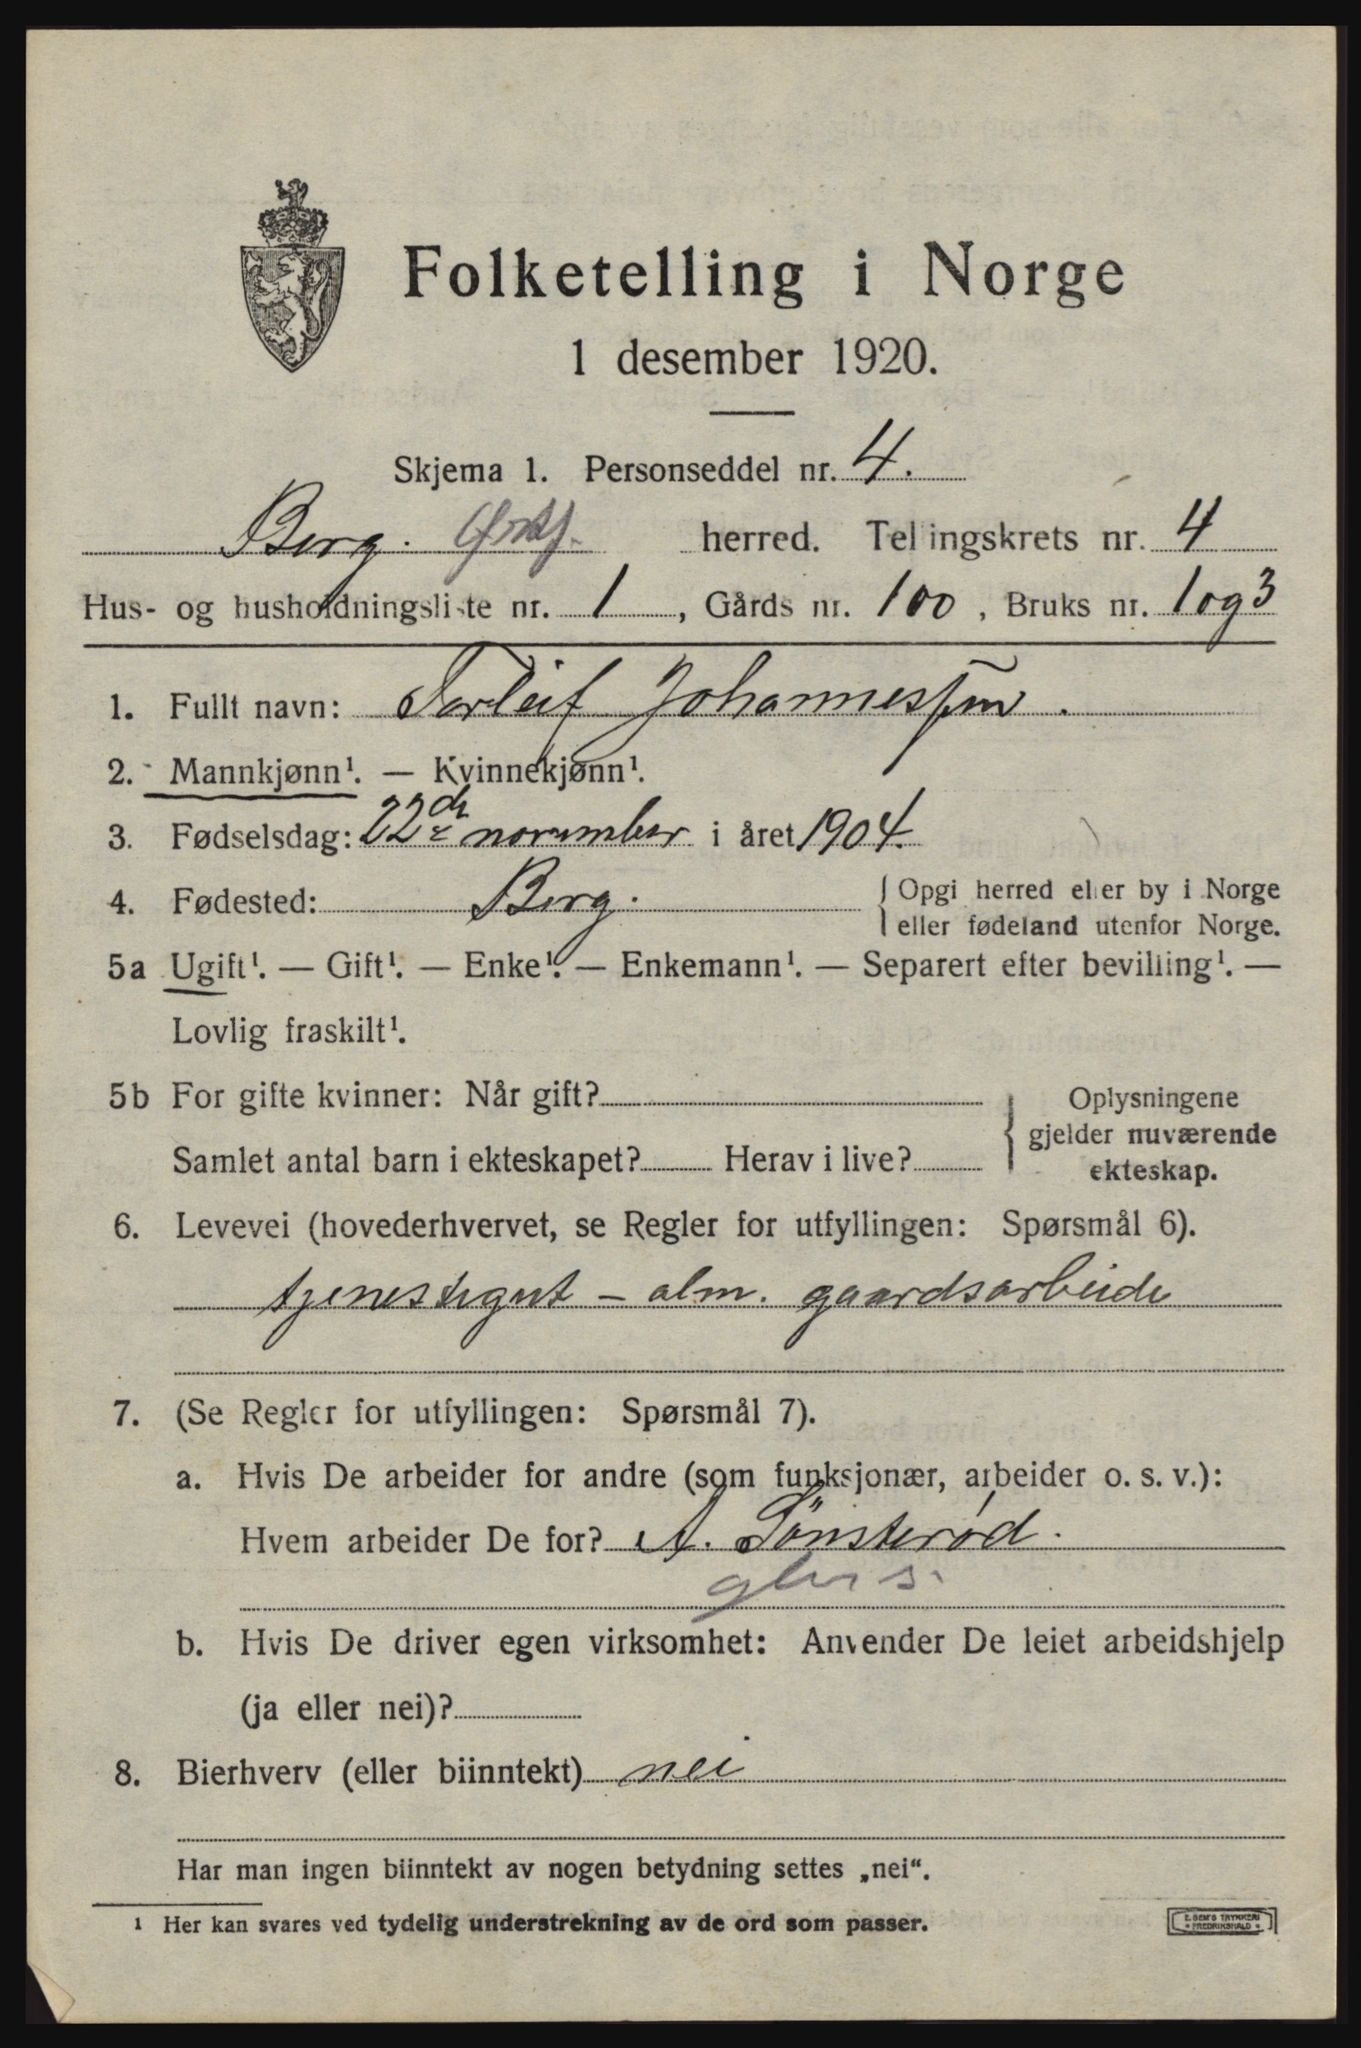 Folketelling i Norge
1 desember 1920.
Skjema 1. Personseddel nr. 4.
Berg. Østf. herred. Tellingskrets nr. 4
Hus- og husholdningsliste nr. 1, Gårds nr. 100, Bruks nr. 1 og 3
1. Fullt navn: Torleif Johannessen.
2. Mannkjønn¹. — Kvinnekjønn¹.
3. Fødselsdag: 22de november i året 1904.
4. Fødested: Berg. { Opgi herred eller by i Norge
eller fødeland utenfor Norge.
5a Ugift¹. — Gift¹. — Enke¹. — Enkemann¹. — Separert efter bevilling¹. —
Lovlig fraskilt¹.
5b For gifte kvinner: Når gift? } Oplysningene
gjelder nuværende
Samlet antal barn i ekteskapet? Herav i live?
ekteskap.
6. Levevei (hovederhvervet, se Regler for utfyllingen: Spørsmål 6).
tjenestegut – alm. gaardsarbeide
7. (Se Regler for utfyllingen: Spørsmål 7).
a. Hvis De arbeider for andre (som funksjonær, arbeider o. s. v.):
Hvem arbeider De for? A. Sönsterød.
gbr s.
b. Hvis De driver egen virksomhet: Anvender De leiet arbeidshjelp
(ja eller nei)?
8. Bierhverv (eller biinntekt) nei
Har man ingen biinntekt av nogen betydning settes „nei“.
¹ Her kan svares ved tydelig understrekning av de ord som passer.
E. SEM'S TRYKKERI
FREDRIKSHALD